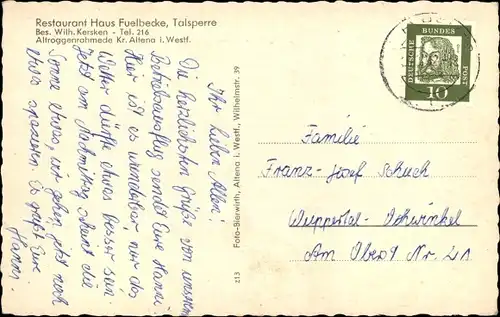 Restaurant Haus Fuelbecke, Talsperre
Bes. Wilh. Kersken - Tel. 216
Altroggenrahmede Kr. Altena i. Westf.
Ihr lieben Allen!
Die herzlichsten Grüße von unserem
Betriebsausflug sendet Eure Hanni.
Hier ist es wunderbar, nur das
Wetter dürfte etwas besser sein.
Jetzt am Nachmittag scheint die
Sonne etwas, wir gehen jetzt noch
etwas spazieren. Es grüßt Eure
Hanni.
Foto-Bierwirth, Altena i. Westf., Wilhelmstr. 39
z13
DEUTSCHE
BUNDES
POST
10
Familie
Franz-Josef Schuck
Wuppertal-Vohwinkel
Am Nr. 21